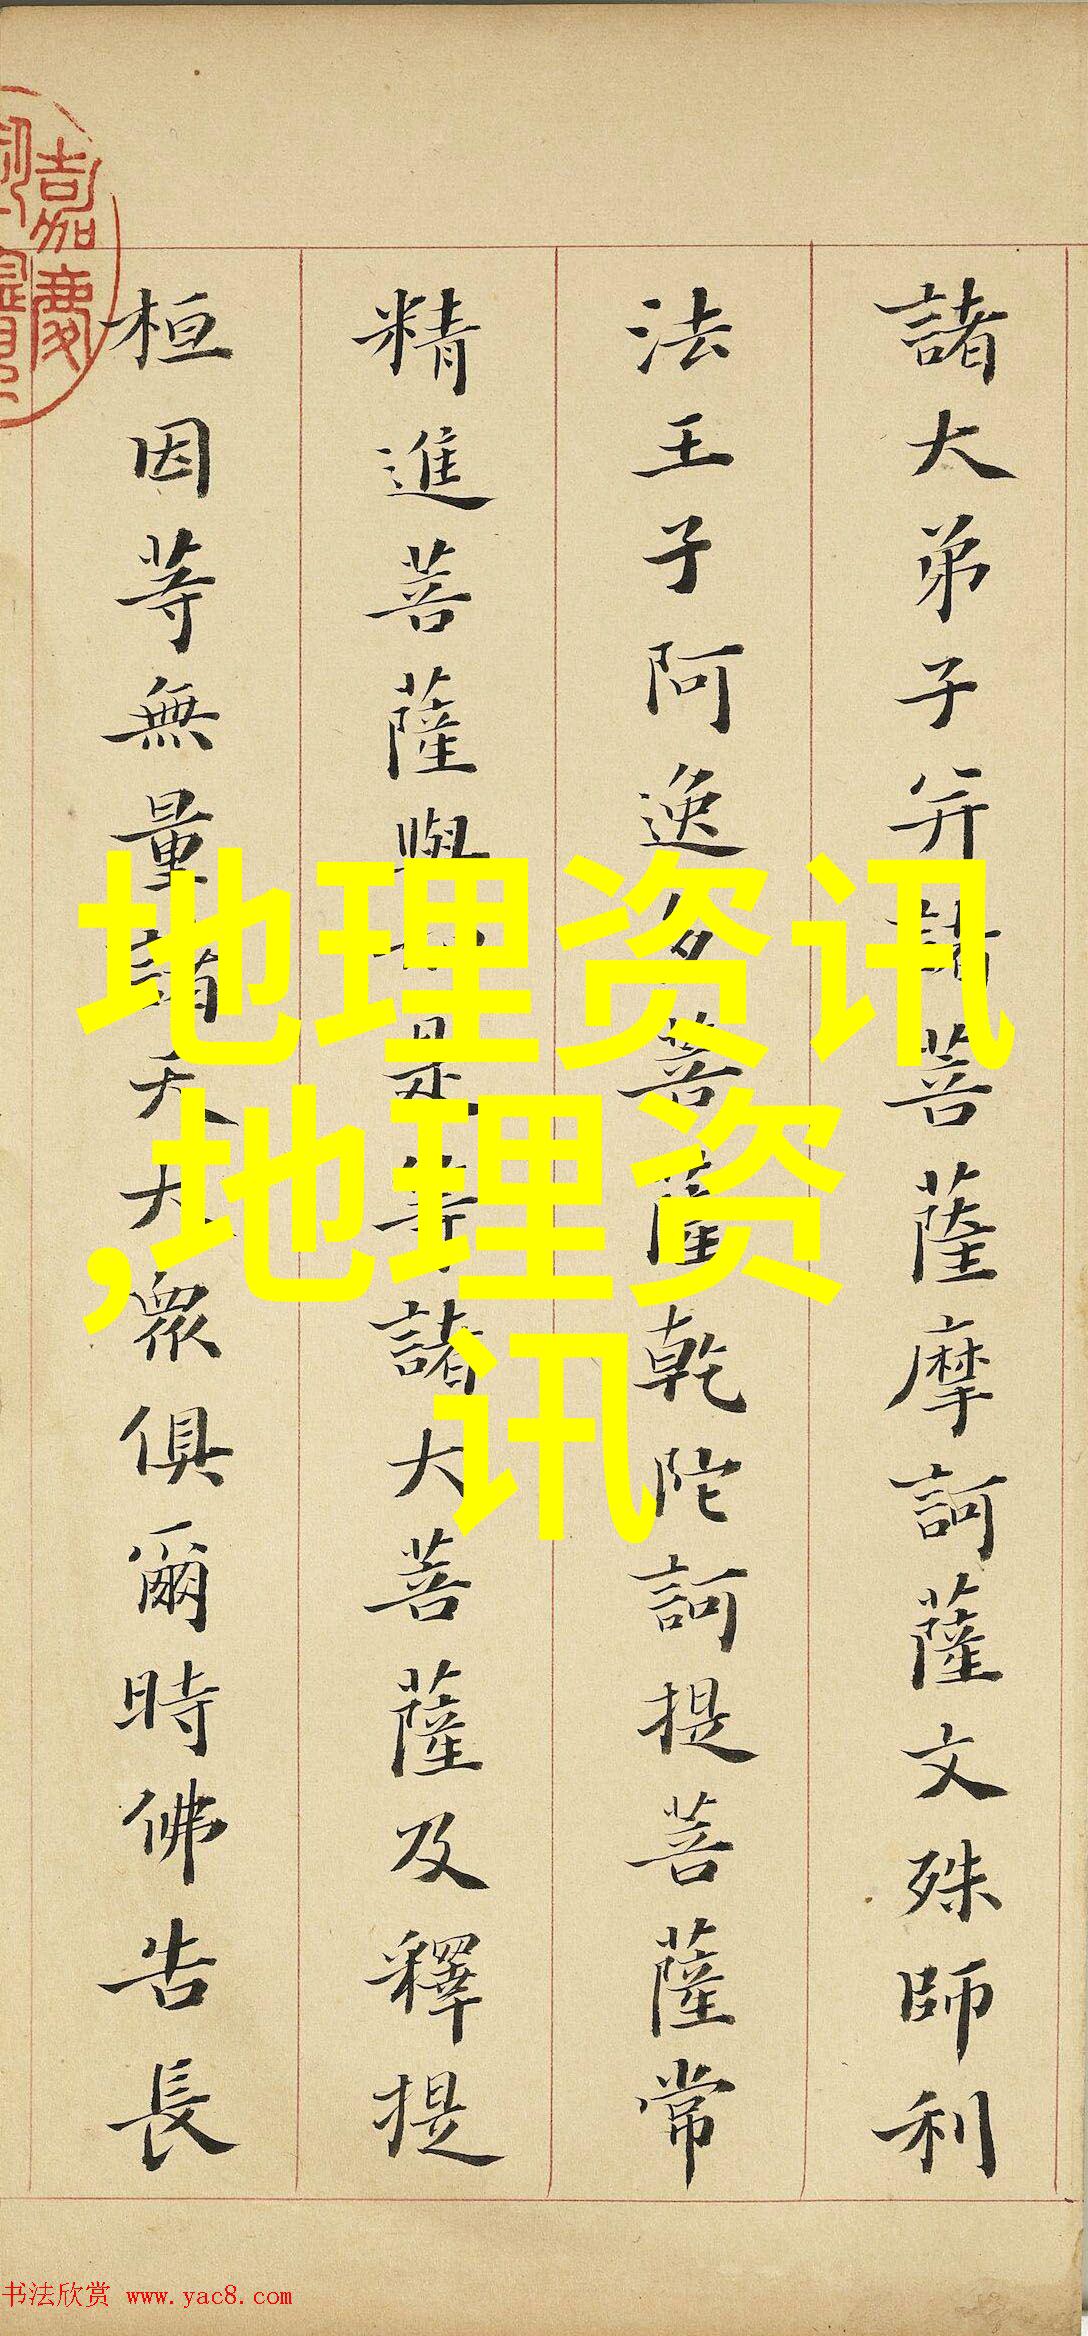 諸大弟子并諸菩薩摩訶薩文殊師利
法王子阿逸多菩薩乾陀訶提菩薩常
精進菩薩與如是等諸大菩薩及釋提
桓因等無量諸天大眾俱爾時佛告長
嘉慶
地理资讯
,地理资
讯
书法欣赏 www.yac8.com